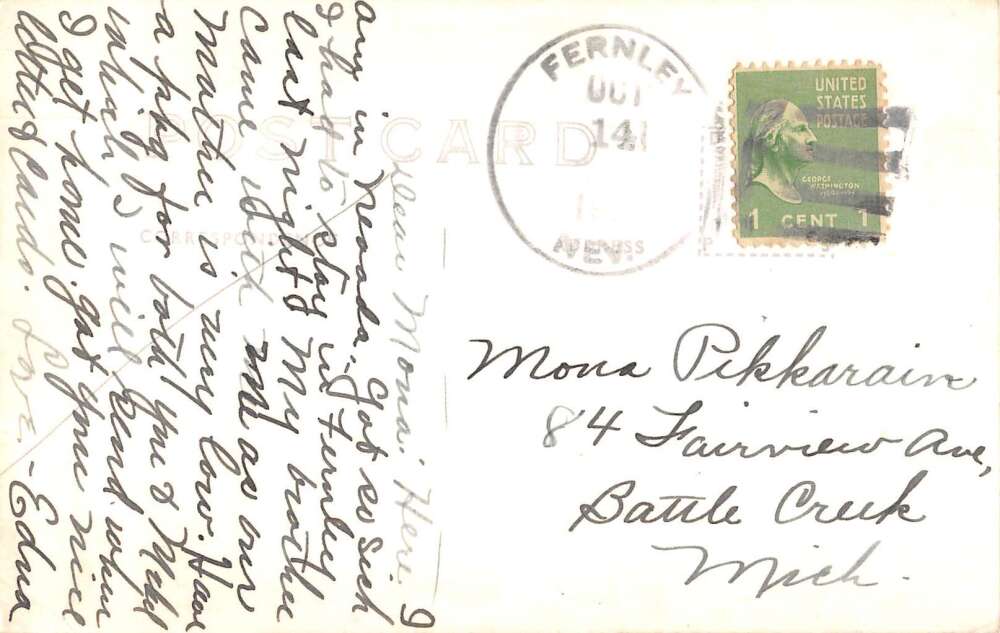 POST CARD
CORRESPONDENCE
ADDRESS
FERNLEY
OCT
14
NEV.
UNITED
STATES
POSTAGE
GEORGE
WASHINGTON
1 CENT 1
Dear Mona: Here I
am in Nevada. Got so sick
I had to stay in Fernley
last night & My brother
came with me as our
Mother is very low. Have
a pkg for both you &
which I will send when
I get home. got your nice
letter & card. Love. - Edna
Mona Pikkarain
84 Fairview Ave,
Battle Creek
Mich.